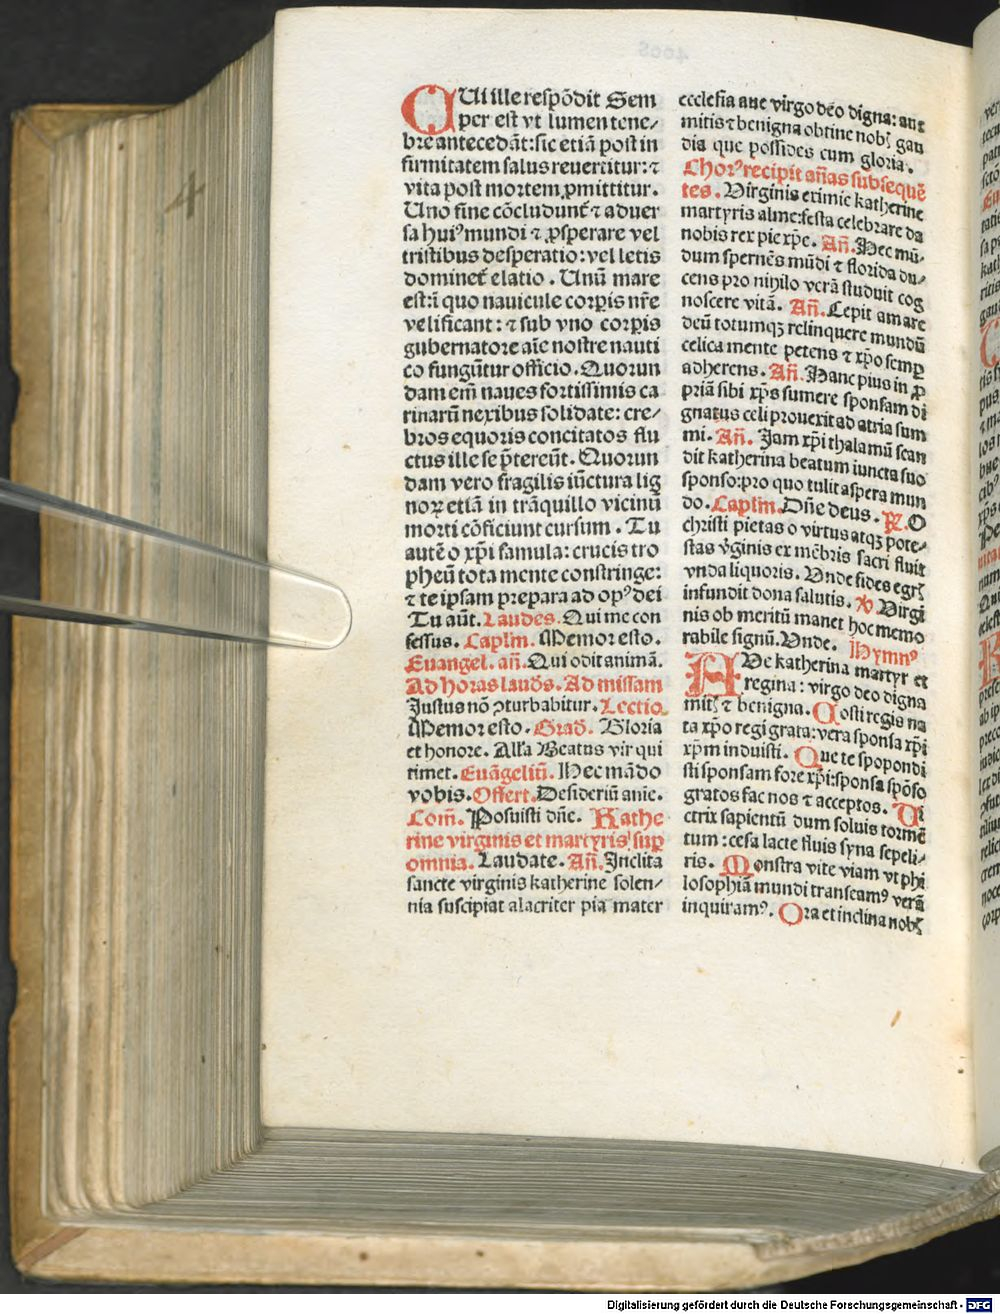 CUi ille respõdit Sem
per est vt lumen tene⸗
bre antecedãt: sic etiã post in
firmitatem salus reuertitur: ⁊
vita post mortem ꝓmittitur.
Uno fine cõcludunt᷑ ⁊ aduer
sa huiꝰ mundi ⁊ ꝓsperare vel
tristibus desperatio: vel letis
dominet᷑ elatio. Unũ mare
est: ĩ quo nauicule corꝑis nr̃e
velificant: ⁊ sub vno corꝑis
gubernatore aĩe nostre nauti
co fungũtur officio. Quorun
dam em̃ naues fortissimis ca
rinarũ nexibus solidate: cre⸗
bros equoris concitatos flu
ctus ille se p̃tereũt. Quorun
dam vero fragilis iũctura lig
noꝝ etiã in trãquillo vicinũ
morti cõficiunt cursum. Tu
autẽ o xp̃i famula: crucis tro
pheũ tota mente constringe:
⁊ te ipsam prepara ad opꝰ dei
Tu aũt. Laudes. Qui me con
fessus. Caplm̃. Memor esto.
Euangel. añ. Qui odit animã.
Ad horas laud̃s. Ad missam
Justus nõ ꝯturbabitur. Lectio
Memor esto. Grad̃. Gloria
et honore. All'a Beatus vir qui
timet. Euãgeliũ. Hec mãdo
vobis. Offert. Desideriũ anie.
Com̃. Posuisti dñe. Kathe
rine virginis et martyris: suꝑ
omnia. Laudate. Añ. Inclita
sancte virginis katherine solen⸗
nia suscipiat alacriter pia mater
ecclesia aue virgo deo digna: aue
mitis ⁊ benigna obtine nobꝭ gau
dia que possides cum gloria.
Chorꝰ recipit añas subsequẽ
tes. Virginis eximie katherine
martyris alme: festa celebrare da
nobis rex pie xp̃e. Añ. Hec mũ⸗
dum spernẽs mũdi ⁊ florida du⸗
cens pro nihilo verã studuit cog
noscere vitã. Añ. Cepit amare
deũ totumqꝫ relinquere mundũ
celica mente petens ⁊ xp̃o semꝑ
adherens. Añ. Hanc pius in ꝓ
priã sibi xp̃s sumere sponsam di
gnatus celi prouexit ad atria sum
mi. Añ. Jam xp̃i thalamũ scan
dit katherina beatum iuncta suo
sponso: pro quo tulit aspera mun
do. Caplm̃. Dñe deus. ℟. O
christi pietas o virtus atqꝫ pote⸗
stas v̓ginis ex mẽbris sacri fluit
vnda liquoris. Unde fides egrꝭ
infundit dona salutis. ℣. Virgi
nis ob meritũ manet hoc memo
rabile signũ. Unde. Hymnꝰ
AUe katherina martyr et
regina: virgo deo digna
mitꝭ ⁊ benigna. Costi regis na
ta xp̃o regi grata: vera sponsa xp̃i
xp̃m induisti. Que te spopondi
sti sponsam fore xp̃i: sponsa spõso
gratos fac nos ⁊ acceptos. Vi
ctrix sapientũ dum soluis tormẽ
tum: cesa lacte fluis syna sepeli⸗
ris. Monstra vite viam vt phi
losophiã mundi transeamꝰ verã
inquiramꝰ. Ora et inclina nobꝭ
Digitalisierung gefördert durch die Deutsche Forschungsgemeinschaft - DFG